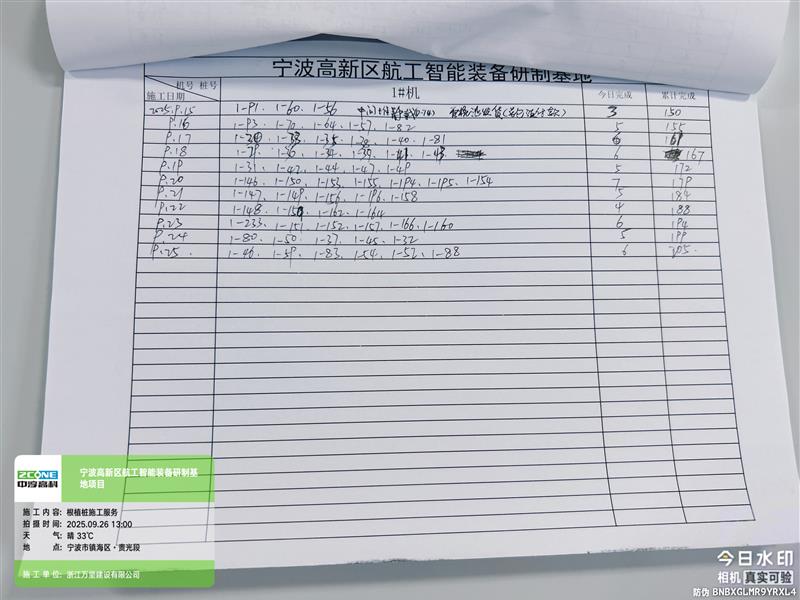 宁波高新区航工智能装备研制基地
机号 桩号 1#机 今日完成 累计完成
施工日期
2025.9.15 1-91、1-60、1-56 3 150
9.16 1-93、1-70、1-64、1-57、1-82 5 155
9.17 1-40、1-81 6 161
9.18 1-43 6 167
9.19 1-31、1-42、1-44、1-47、1-49 5 172
9.20 1-146、1-150、1-153、1-155、1-194、1-195、1-154 7 179
9.21 1-147、1-149、1-156、1-196、1-158 5 184
9.22 1-148、1-162、1-164 4 188
9.23 1-233、1-151、1-152、1-157、1-166、1-160 6 194
9.24 1-80、1-50、1-37、1-45、1-32 5 199
9.25. 1-46、1-59、1-83、1-54、1-52、1-88 6 205.
ZCONE
中淳高科
宁波高新区航工智能装备研制基
地项目
施工内容: 根植桩施工服务
拍摄时间: 2025.09.26 13:00
天气: 晴 33℃
地点: 宁波市镇海区·贵光段
施工单位: 浙江万垒建设有限公司
今日水印
相机 真实可验
防伪 BNBXGLMR9YRXL4